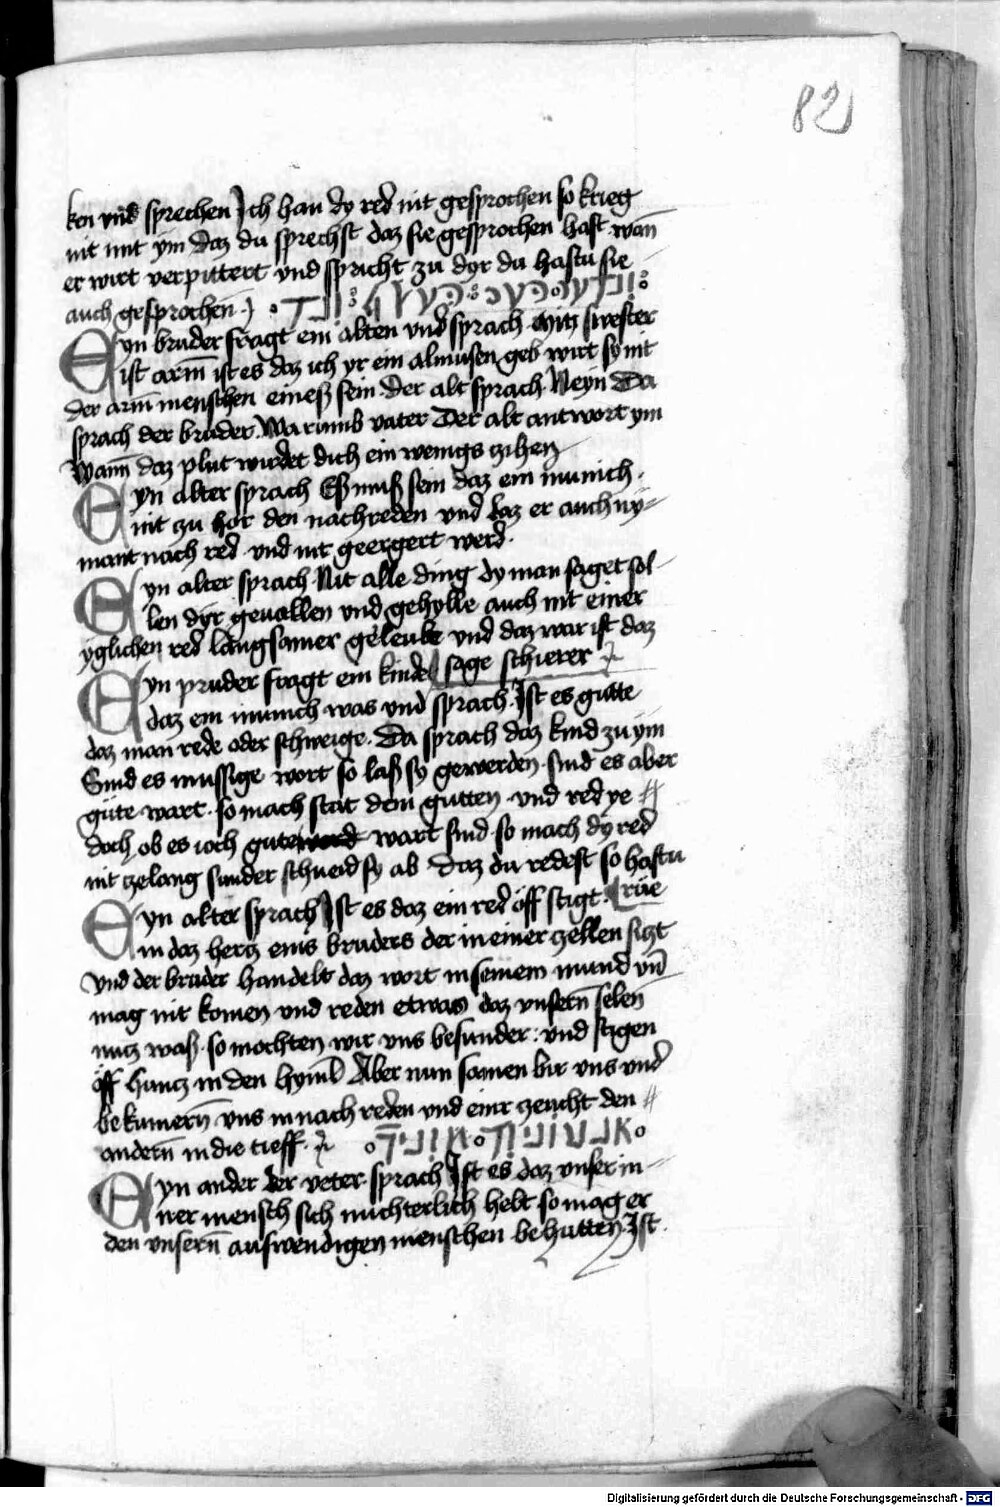 82
ken vnd sprechen Ich han dy red nit gesprochen so krieg
nit mit ym daz du sprechst daz sie gesprochen hast wan̄
er wirt verpittert vnd spricht zu dyr du hastu sie
auch gesprochen
Eyn bruder fragt ein alten vnd sprach myn swester
ist arm̄ ist es daz ich yr ein almusen geb wirt sy nit
der arm̄ menschen eineß sein Der alt sprach Neyn Da
sprach der bruder Warumb vater Der alt antwort ym
Wann daz plut wurdet dich ein wenigs zihen
Eyn alter sprach Eß muß sein daz ein munich
nit zu hor den nachreden vnd daz er auch ny-
mant nach red vnd nit geergert werd
Eyn alter sprach Nit alle ding dy man saget sol-
len dyr geuallen vnd gehylle auch nit einer
yglichen red langsamer geleube vnd daz war ist daz
sage schierer
Eyn pruder fragt ein kindel
daz ein munich was vnd sprach Ist es gutte
daz man rede oder schweige Da sprach daz kind zu ym
Sind es mussige wort so laß sy gewerden sind es aber
güte wart so mach stat dem gutten vnd red ye
doch ob es ioch gute wart sind so mach dy red
nit zelang sunder schneid sy ab Daz du redest so hastu
rüe
Eyn alter sprach Ist es daz ein red öff stigt
in daz hertz eins bruders der in einer zellen sitzt
vnd der bruder handelt daz wort in seinem mund vn̄
mag nit komen vnd reden etwas daz vnsern̄ selen
nutz waß so mochten wir vns besunder vnd stigen
öff huntz in den hyml Aber nun samen bir vns vnd
bekumern̄ vns in nach reden vnd einr zeucht den
andern̄ in die tieff
Eyn ander der veter sprach Ist es daz vnser in-
rer mensch sich nuchterlich hebt so mag er
den vnsern̄ auswendigen menschen behutten Ist
Digitalisierung gefördert durch die Deutsche Forschungsgemeinschaft - DFG